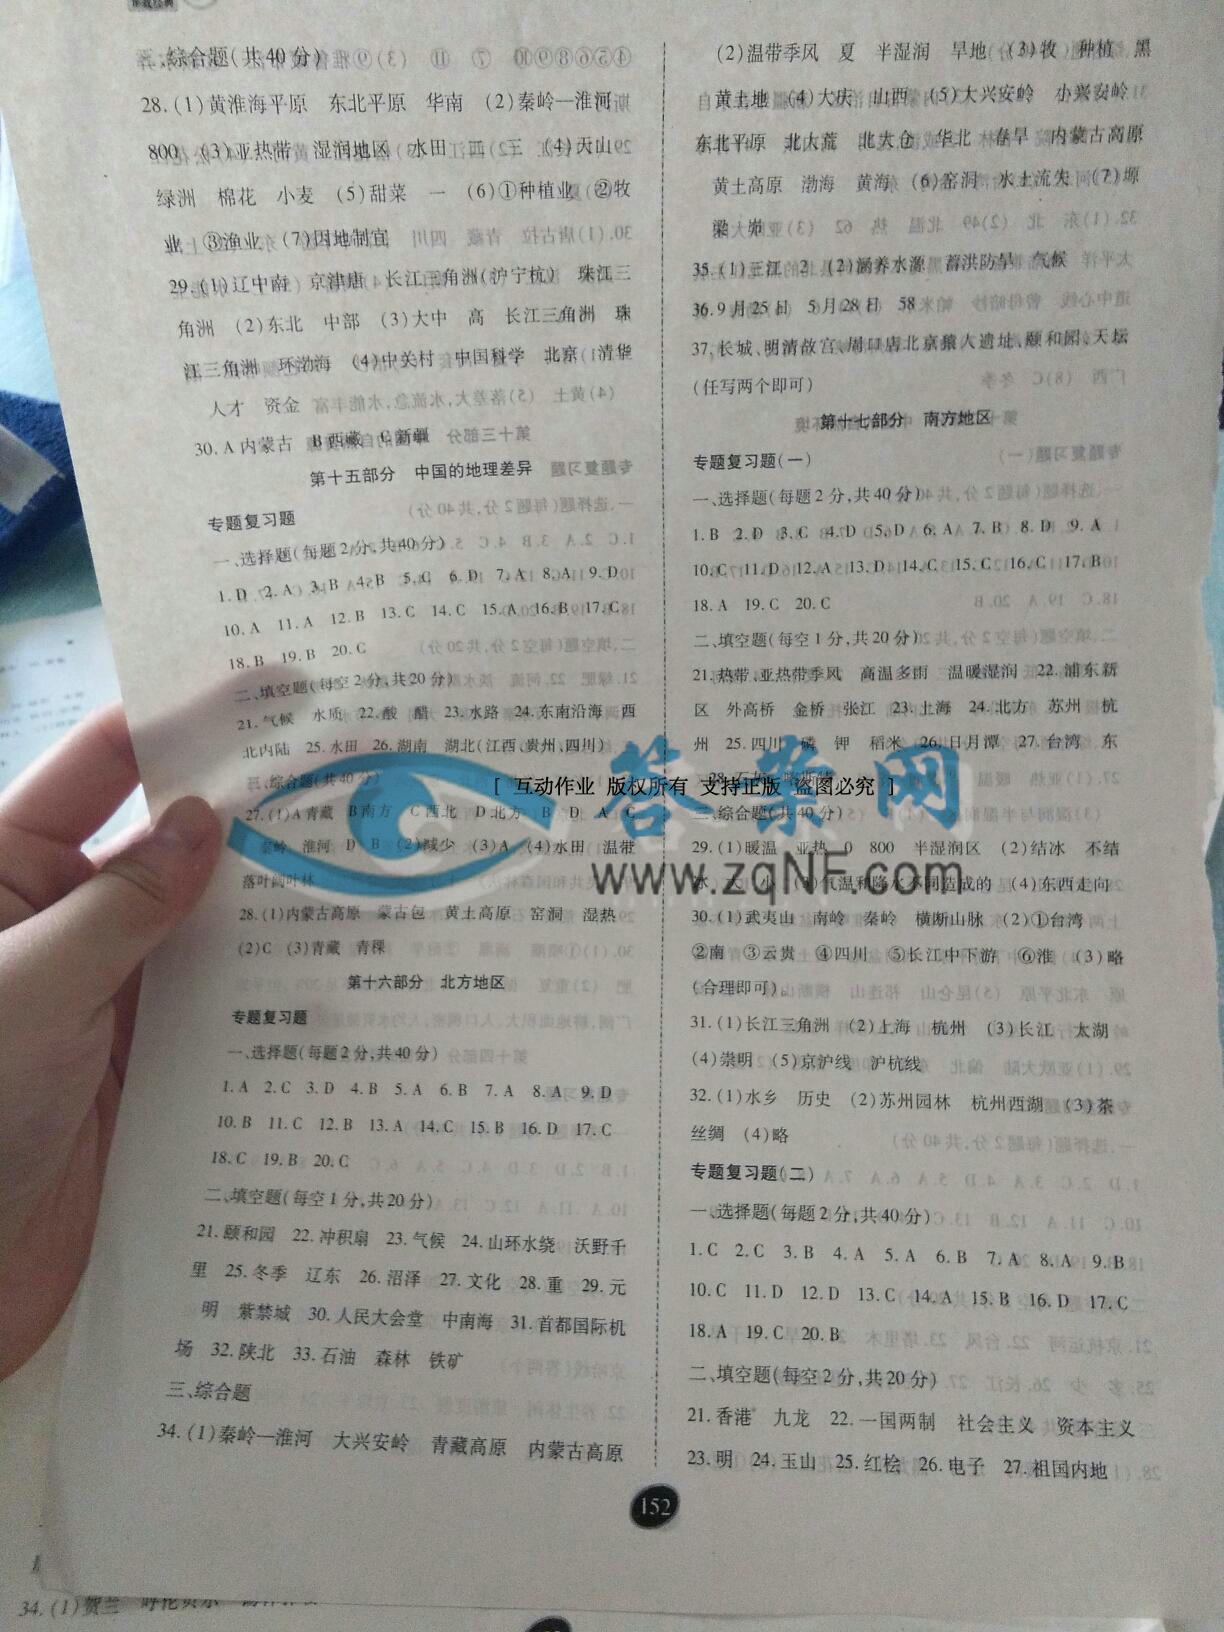 三、综合题(共40分)
28.(1)黄淮海平原 东北平原 华南 (2)秦岭—淮河
800 (3)亚热带 湿润地区 水田 四 三 (4)天山
绿洲 棉花 小麦 (5)甜菜 一 (6)①种植业 ②牧
业 ③渔业 (7)因地制宜
29.(1)辽中南 京津唐 长江三角洲(沪宁杭) 珠江三
角洲 (2)东北 中部 (3)大中 高 长江三角洲 珠
江三角洲 环渤海 (4)中关村 中国科学 北京 清华
人才 资金
30.A 内蒙古 B 西藏 C 新疆
第十五部分 中国的地理差异
专题复习题
一、选择题(每题2分,共40分)
1.D 2.A 3.B 4.B 5.C 6.D 7.A 8.A 9.D
10.A 11.A 12.B 13.C 14.C 15.A 16.B 17.C
18.B 19.B 20.C
二、填空题(每空2分,共20分)
21.气候 水质 22.酸 醋 23.水路 24.东南沿海 西
北内陆 25.水田 26.湖南 湖北(江西、贵州、四川)
三、综合题(共40分)
27.(1)A 青藏 B 南方 C 西北 D 北方 B D A C
秦岭 淮河 D B (2)减少 (3)A (4)水田 温带
落叶阔叶林
28.(1)内蒙古高原 蒙古包 黄土高原 窑洞 湿热
(2)C (3)青藏 青稞
第十六部分 北方地区
专题复习题
一、选择题(每题2分,共40分)
1.A 2.C 3.D 4.B 5.A 6.B 7.A 8.A 9.D
10.B 11.C 12.B 13.A 14.C 15.B 16.D 17.C
18.C 19.B 20.C
二、填空题(每空1分,共20分)
21.颐和园 22.冲积扇 23.气候 24.山环水绕 沃野千
里 25.冬季 辽东 26.沼泽 27.文化 28.重 29.元
明 紫禁城 30.人民大会堂 中南海 31.首都国际机
场 32.陕北 33.石油 森林 铁矿
三、综合题
34.(1)秦岭—淮河 大兴安岭 青藏高原 内蒙古高原
(2)温带季风 夏 半湿润 旱地 (3)牧 种植 黑
黄土地 (4)大庆 山西 (5)大兴安岭 小兴安岭
东北平原 北大荒 北大仓 华北 春旱 内蒙古高原
黄土高原 渤海 黄海 (6)窑洞 水土流失 (7)塬
梁 峁
35.(1)三江 2 (2)涵养水源 蓄洪防旱 气候
36.9月25日 5月28日 58
37.长城、明清故宫、周口店北京猿人遗址、颐和园、天坛
(任写两个即可)
第十七部分 南方地区
专题复习题(一)
一、选择题(每题2分,共40分)
1.B 2.D 3.C 4.D 5.D 6.A 7.B 8.D 9.A
10.C 11.D 12.A 13.D 14.C 15.C 16.C 17.B
18.A 19.C 20.C
二、填空题(每空1分,共20分)
21.热带、亚热带季风 高温多雨 温暖湿润 22.浦东新
区 外高桥 金桥 张江 23.上海 24.北方 苏州 杭
州 25.四川 磷 钾 稻米 26.日月潭 27.台湾 东
28.石灰
[ 互动作业 版权所有 支持正版 盗图必究 ]
答案网
www.zqNF.com
三、综合题(共40分)
29.(1)暖温 亚热 0 800 半湿润区 (2)结冰 不结
冰 大 小 (3)气温和降水不同造成的 (4)东西走向
30.(1)武夷山 南岭 秦岭 横断山脉 (2)①台湾
②南 ③云贵 ④四川 ⑤长江中下游 ⑥淮 (3)略
(合理即可)
31.(1)长江三角洲 (2)上海 杭州 (3)长江 太湖
(4)崇明 (5)京沪线 沪杭线
32.(1)水乡 历史 (2)苏州园林 杭州西湖 (3)茶
丝绸 (4)略
专题复习题(二)
一、选择题(每题2分,共40分)
1.C 2.C 3.B 4.A 5.A 6.B 7.A 8.A 9.B
10.C 11.D 12.D 13.C 14.A 15.B 16.D 17.C
18.A 19.C 20.B
二、填空题(每空2分,共20分)
21.香港 九龙 22.一国两制 社会主义 资本主义
23.明 24.玉山 25.红桧 26.电子 27.祖国内地
152
34.(1)贺兰